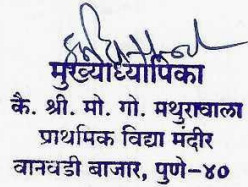 मुख्याध्यापिका
कै. श्री. मो. गो. मथुरावाला
प्राथमिक विद्या मंदीर
वानवडी बाजार, पुणे-४०